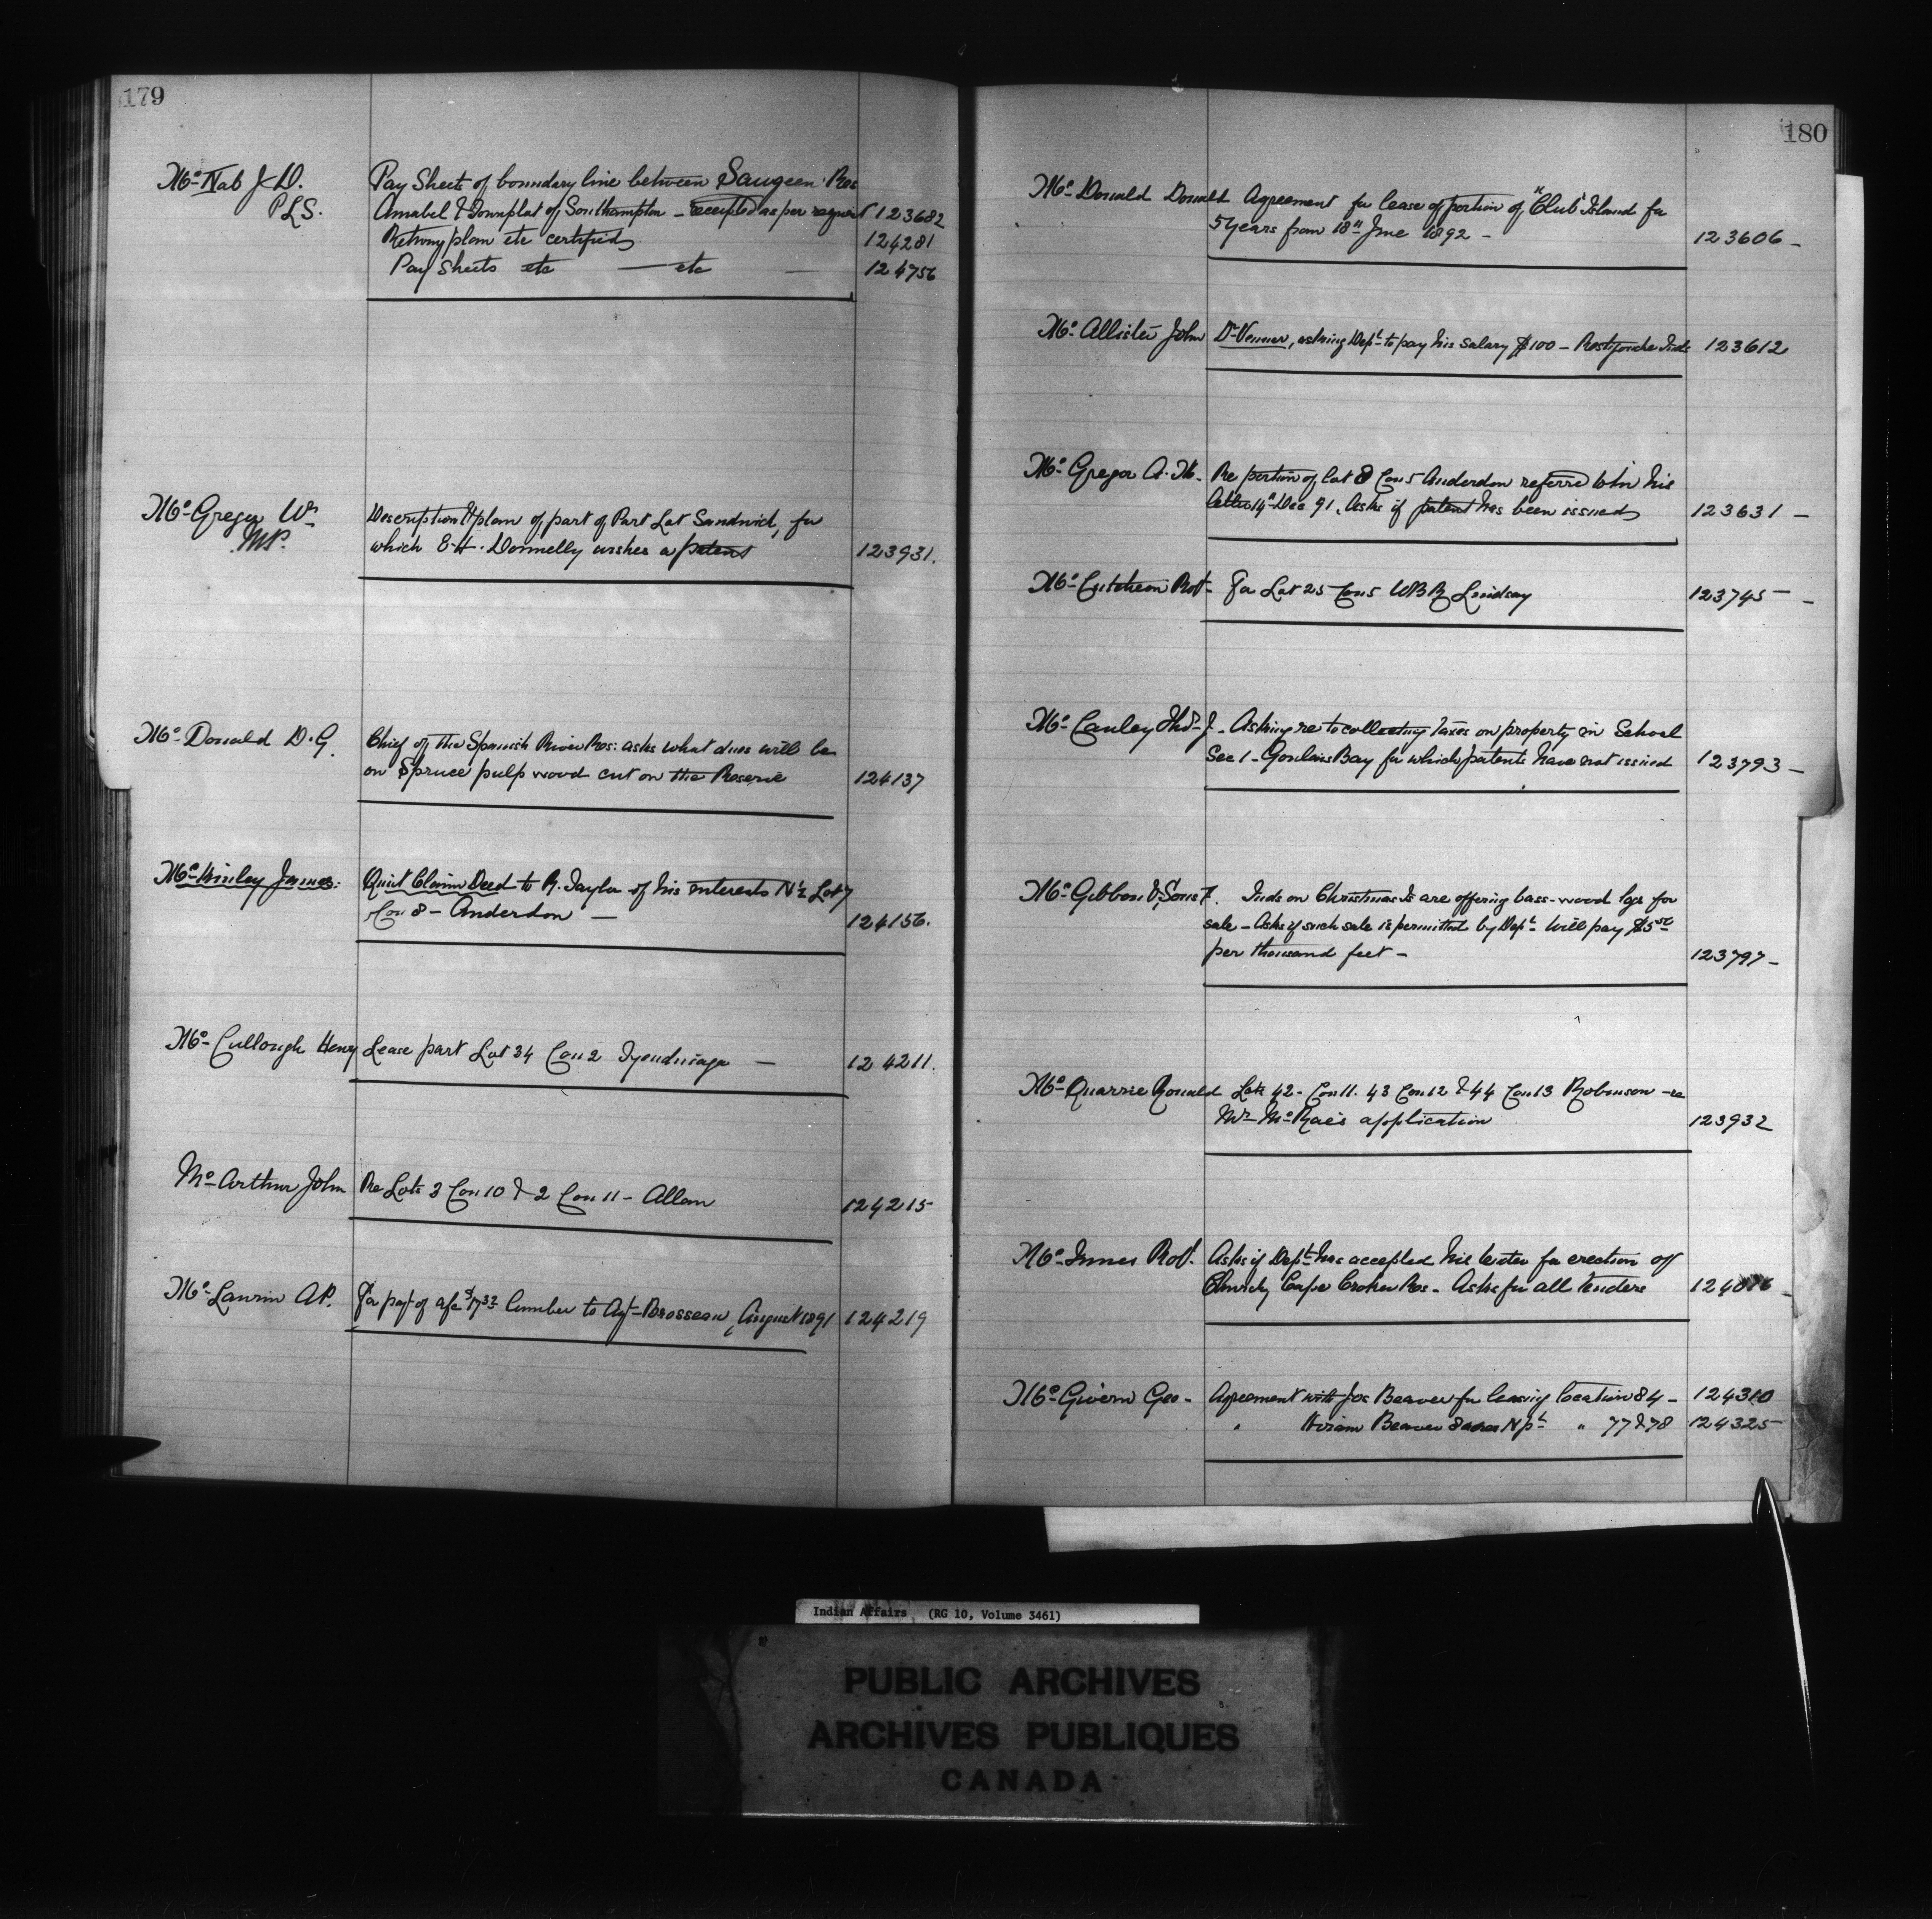 179
Mc Nab J D. Pay Sheets of boundary line between Saugeen Res
P.L.S. Amabel & Townplat of Southampton - receipted as per request 123682
Returns plan etc certified 124281
Pay Sheets etc — etc — 124756
Mc Gregor Wm Description & plan of part of Part Lot Sandwich, for
M.P. which E. H. Donnelly wishes a patent 123931.
Mc Donald D. G. Chief of the Spanish River Res: asks what dues will be
on Spruce pulp wood cut on the Reserve 124137
Mc Kinley James: Quit Claim Deed to R. Taylor of his interests N½ Lot 7
Con 8 - Anderdon — 124156.
Mc Cullough Henry Lease part Lot 34 Con 2 Tyendinaga — 124211.
Mc Arthur John Re Lots 3 Con 10 & 2 Con 11 - Allan 124215
Mc Laurin A P. For payt of a/c $17.32 lumber to Agt Brosseau, August 1891 124219
180
Mc Donald Donald Agreement for lease of portion of "Club" Island for
5 years from 18th June 1892 - 123606 -
Mc Allister John Dr Venner, asking Dept to pay his salary $100 - Restigouche Inds 123612
Mc Gregor A. M. Re portion of lot 8 Con 5 Anderdon referred to in his
letter 14th Dec 91. Asks if patent has been issued 123631 -
Mc Cutcheon Robt - For Lot 25 Con 5 WBR Lindsay 123745 -
Mc Cauley Thos J - Asking re to collecting taxes on property in School
Sec 1 - Goulais Bay for which patents have not issued 123793 -
Mc Gibbon & Sons F. Inds on Christian Is are offering bass-wood logs for
sale - Asks if such sale is permitted by Dept Will pay $5.50
per thousand feet - 123797 -
Mc Quarrie Ronald Lots 42 - Con 11. 43 Con 12 & 44 Con 13 Robinson - re
Mr McRae's application 123932
Mc Innes Robt. Asks if Dept has accepted his tender for erection of
Church, Cape Croker Res - Asks for all tenders
Mc Givern Geo - Agreement with Jos Beaver for leasing location 84 - 124310
" Hiram Beaver 8 acres N pt " 77 & 78 124325
Indian Affairs (RG 10, Volume 3461)
PUBLIC ARCHIVES
ARCHIVES PUBLIQUES
CANADA